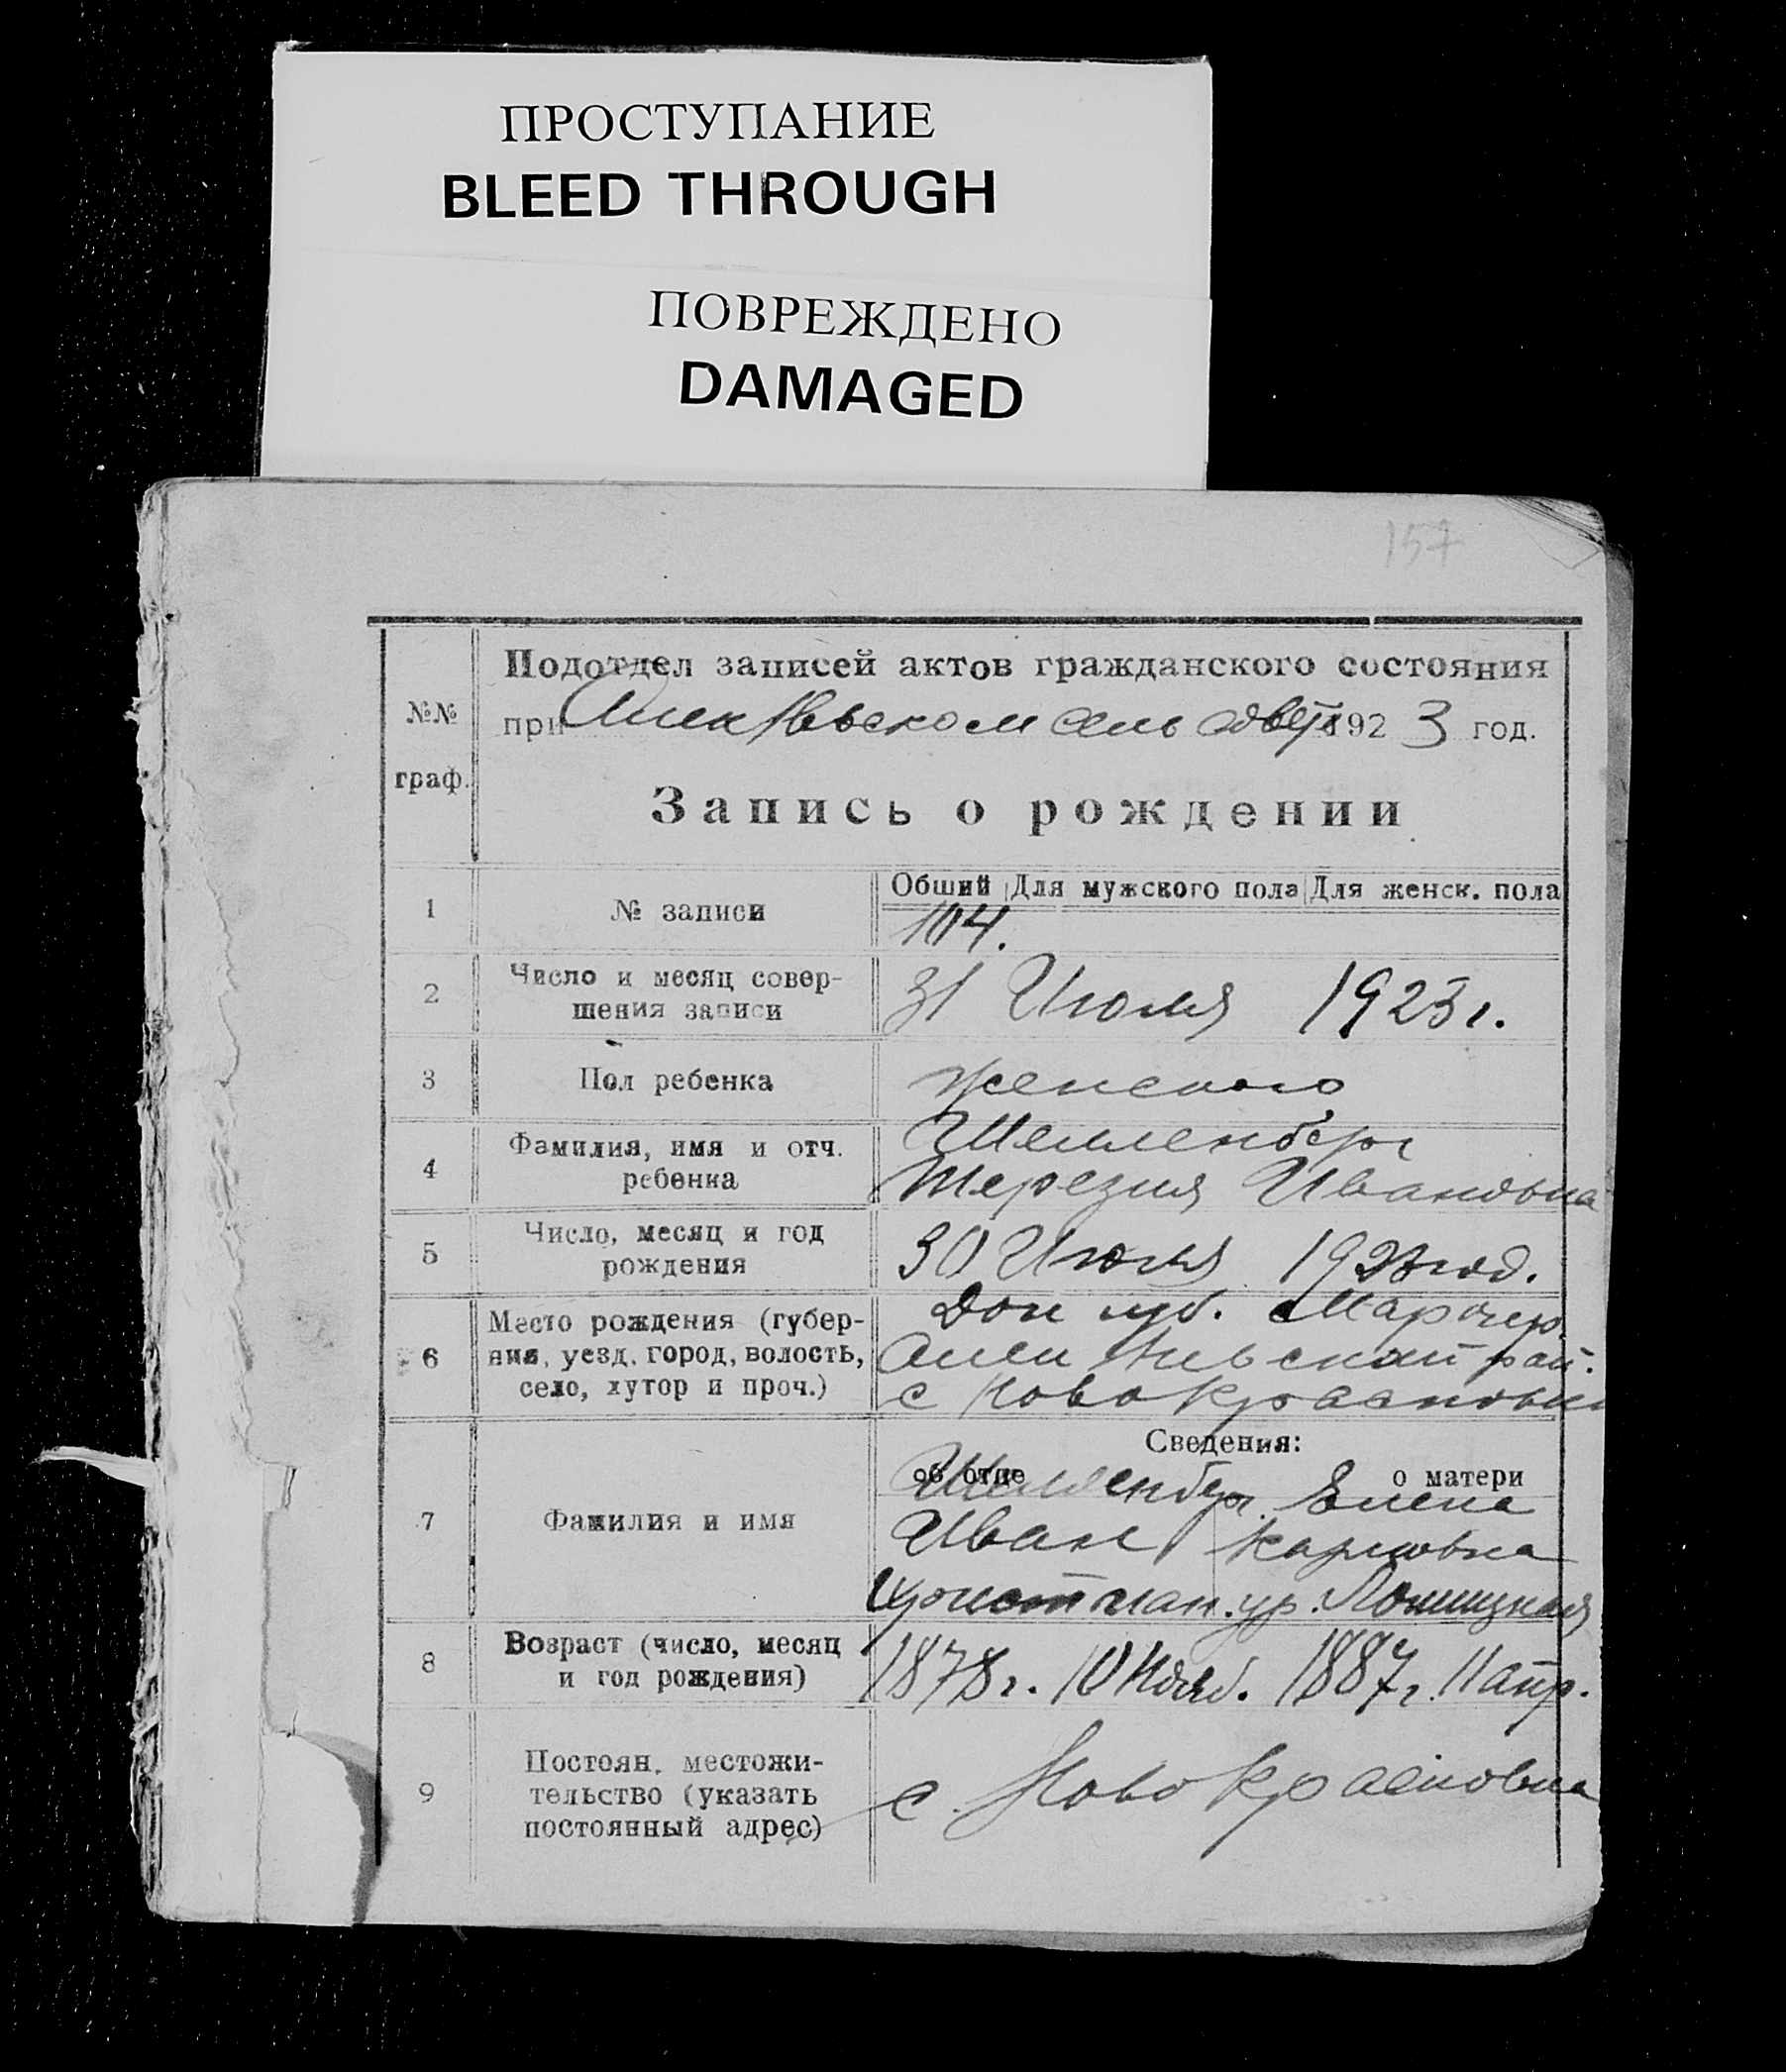 ПРОСТУПАНИЕ
BLEED THROUGH
ПОВРЕЖДЕНО
DAMAGED
157
Подотдел записей актов гражданского состояния
№№
при сель 192 3 год.
граф.
Запись о рождении
Общий Для мужского пола Для женск. пола
1 № записи 104.
2 Число и месяц совер-
шения записи
31 Июля 1923 г.
3 Пол ребенка женского
4 Фамилия, имя и отч.
ребенка
Шелленберг
Терезия Ивановна
5 Число, месяц и год
рождения
30 Июля 1923 год.
6 Место рождения (губер-
ния, уезд, город, волость,
село, хутор и проч.)
Дон губ.
рай.
с Ново Красновка
Сведения:
об отце о матери
7 Фамилия и имя
Шелленберг Елена
Иван Карловна
ур.
8 Возраст (число, месяц
и год рождения)
1878 г. 10 Нояб. 1887 г. 11 апр.
9 Постоян. местожи-
тельство (указать
постоянный адрес)
с. Ново Красновка